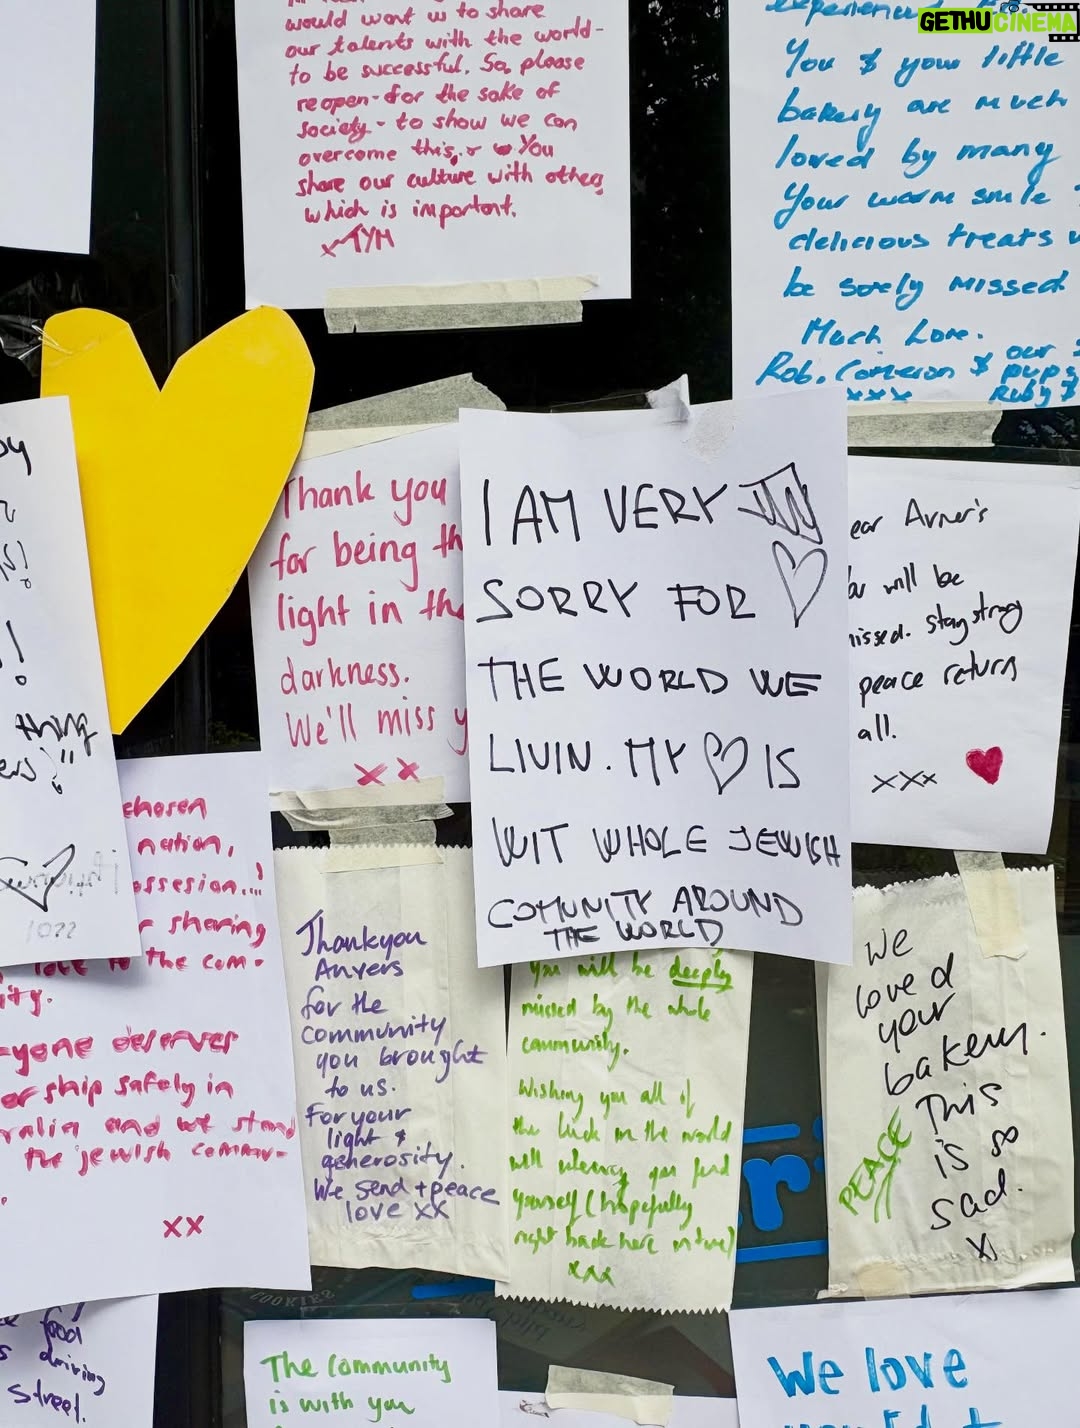 GETHUCINEMA
would want us to share
our talents with the world -
to be successful. So, please
reopen - for the sake of
society - to show we can
overcome this. You
share our culture with others,
which is important.
x TYM
You & your little
bakery are much
loved by many
Your warm smile
delicious treats
be sorely missed
Much Love.
Rob, Cameron & our
pups
xxx Ruby &
Thank you
for being th
light in the
darkness.
We'll miss y
x x
I AM VERY
SORRY FOR
THE WORLD WE
LIVIN. MY IS
WIT WHOLE JEWISH
COMUNITY AROUND
THE WORLD
ear Avner's
will be
issed. stay strong
peace returns
all.
xxx
thing
chosen
nation,
ssession..."
sharing
love to the com-
ity.
yone deserves
or ship safely in
ralia and we stand
the jewish commu-
xx
Thankyou
Anvers
for the
community
you brought
to us.
For your
light &
generosity.
We send + peace
love xx
You will be deeply
missed by the whole
community.
Wishing you all of
the luck in the world
will you find
yourself (hopefully
right back here in time)
xxx
We
loved
your
bakery.
This
is so
sad.
x
PEACE
food
driving
Street.
COOKIES
The community
is with you
We love